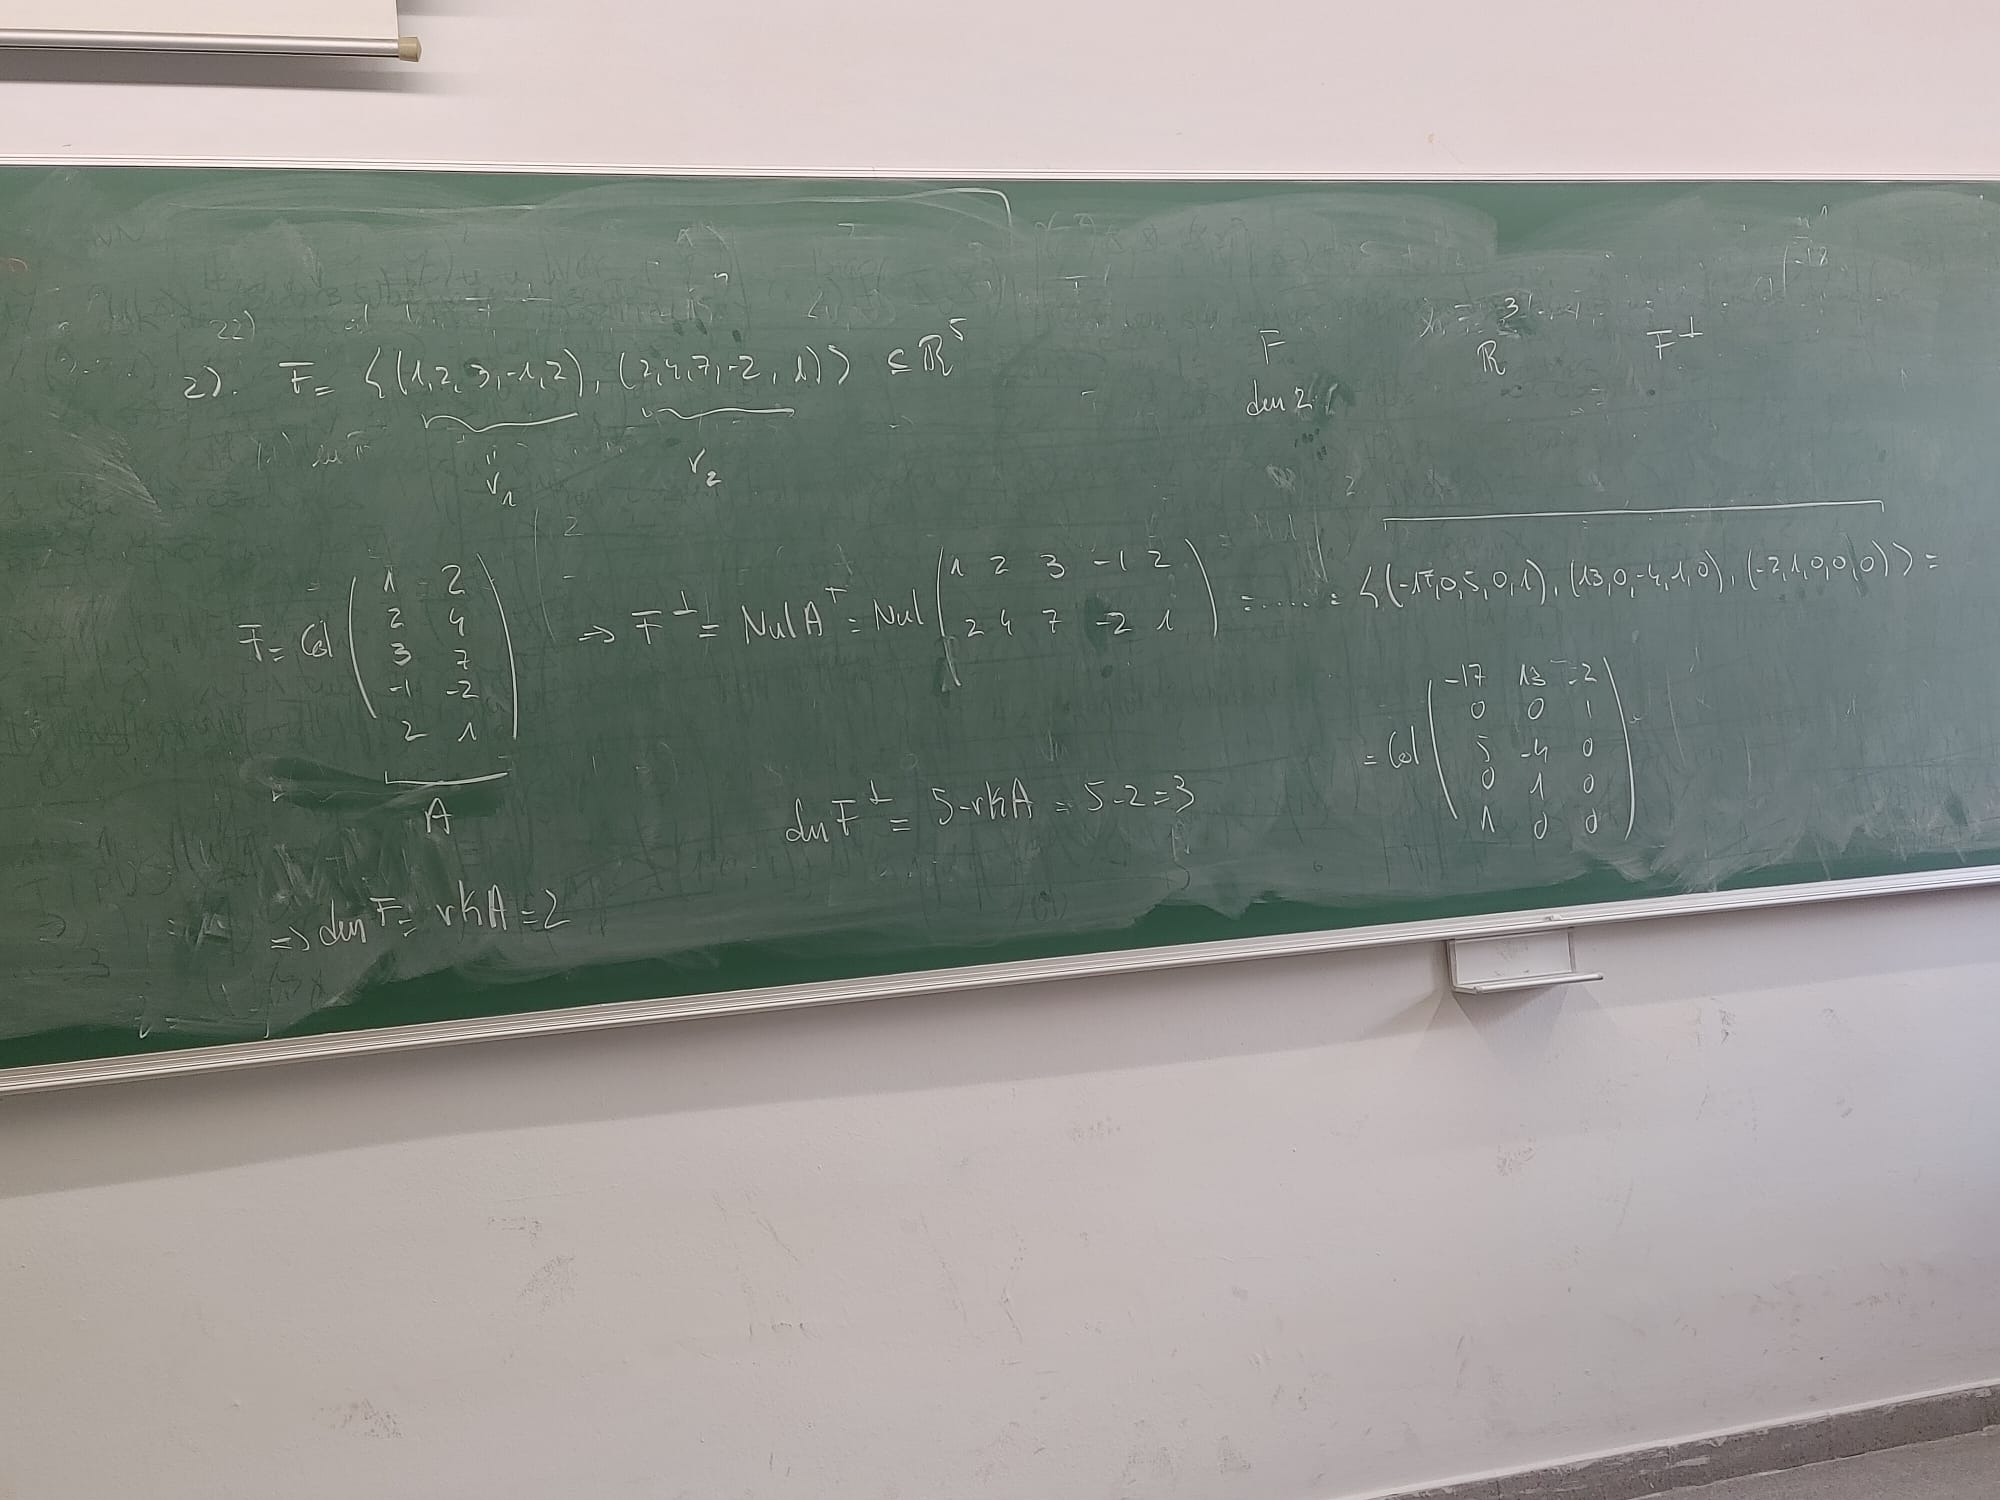 22)
2). F = <(1,2,3,-1,2), (2,4,7,-2,1)> ⊆ ℝ⁵
v₁ v₂
F
dim 2
ℝ
F^⊥
F = Col ( 1 2
2 4
3 7
-1 -2
2 1 )
A
=> F^⊥ = Nul A^T = Nul ( 1 2 3 -1 2
2 4 7 -2 1 ) = ..... = <(-17,0,5,0,1), (13,0,-4,1,0), (-2,1,0,0,0)> =
= Col ( -17 13 -2
0 0 1
5 -4 0
0 1 0
1 0 0 )
dim F^⊥ = 5-rkA = 5-2=3
=> dim F = rkA = 2